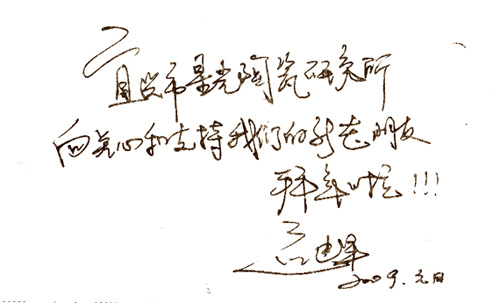 宜兴市星光陶瓷研究所
向关心和支持我们的新老朋友
拜年啦!!!
2009.元